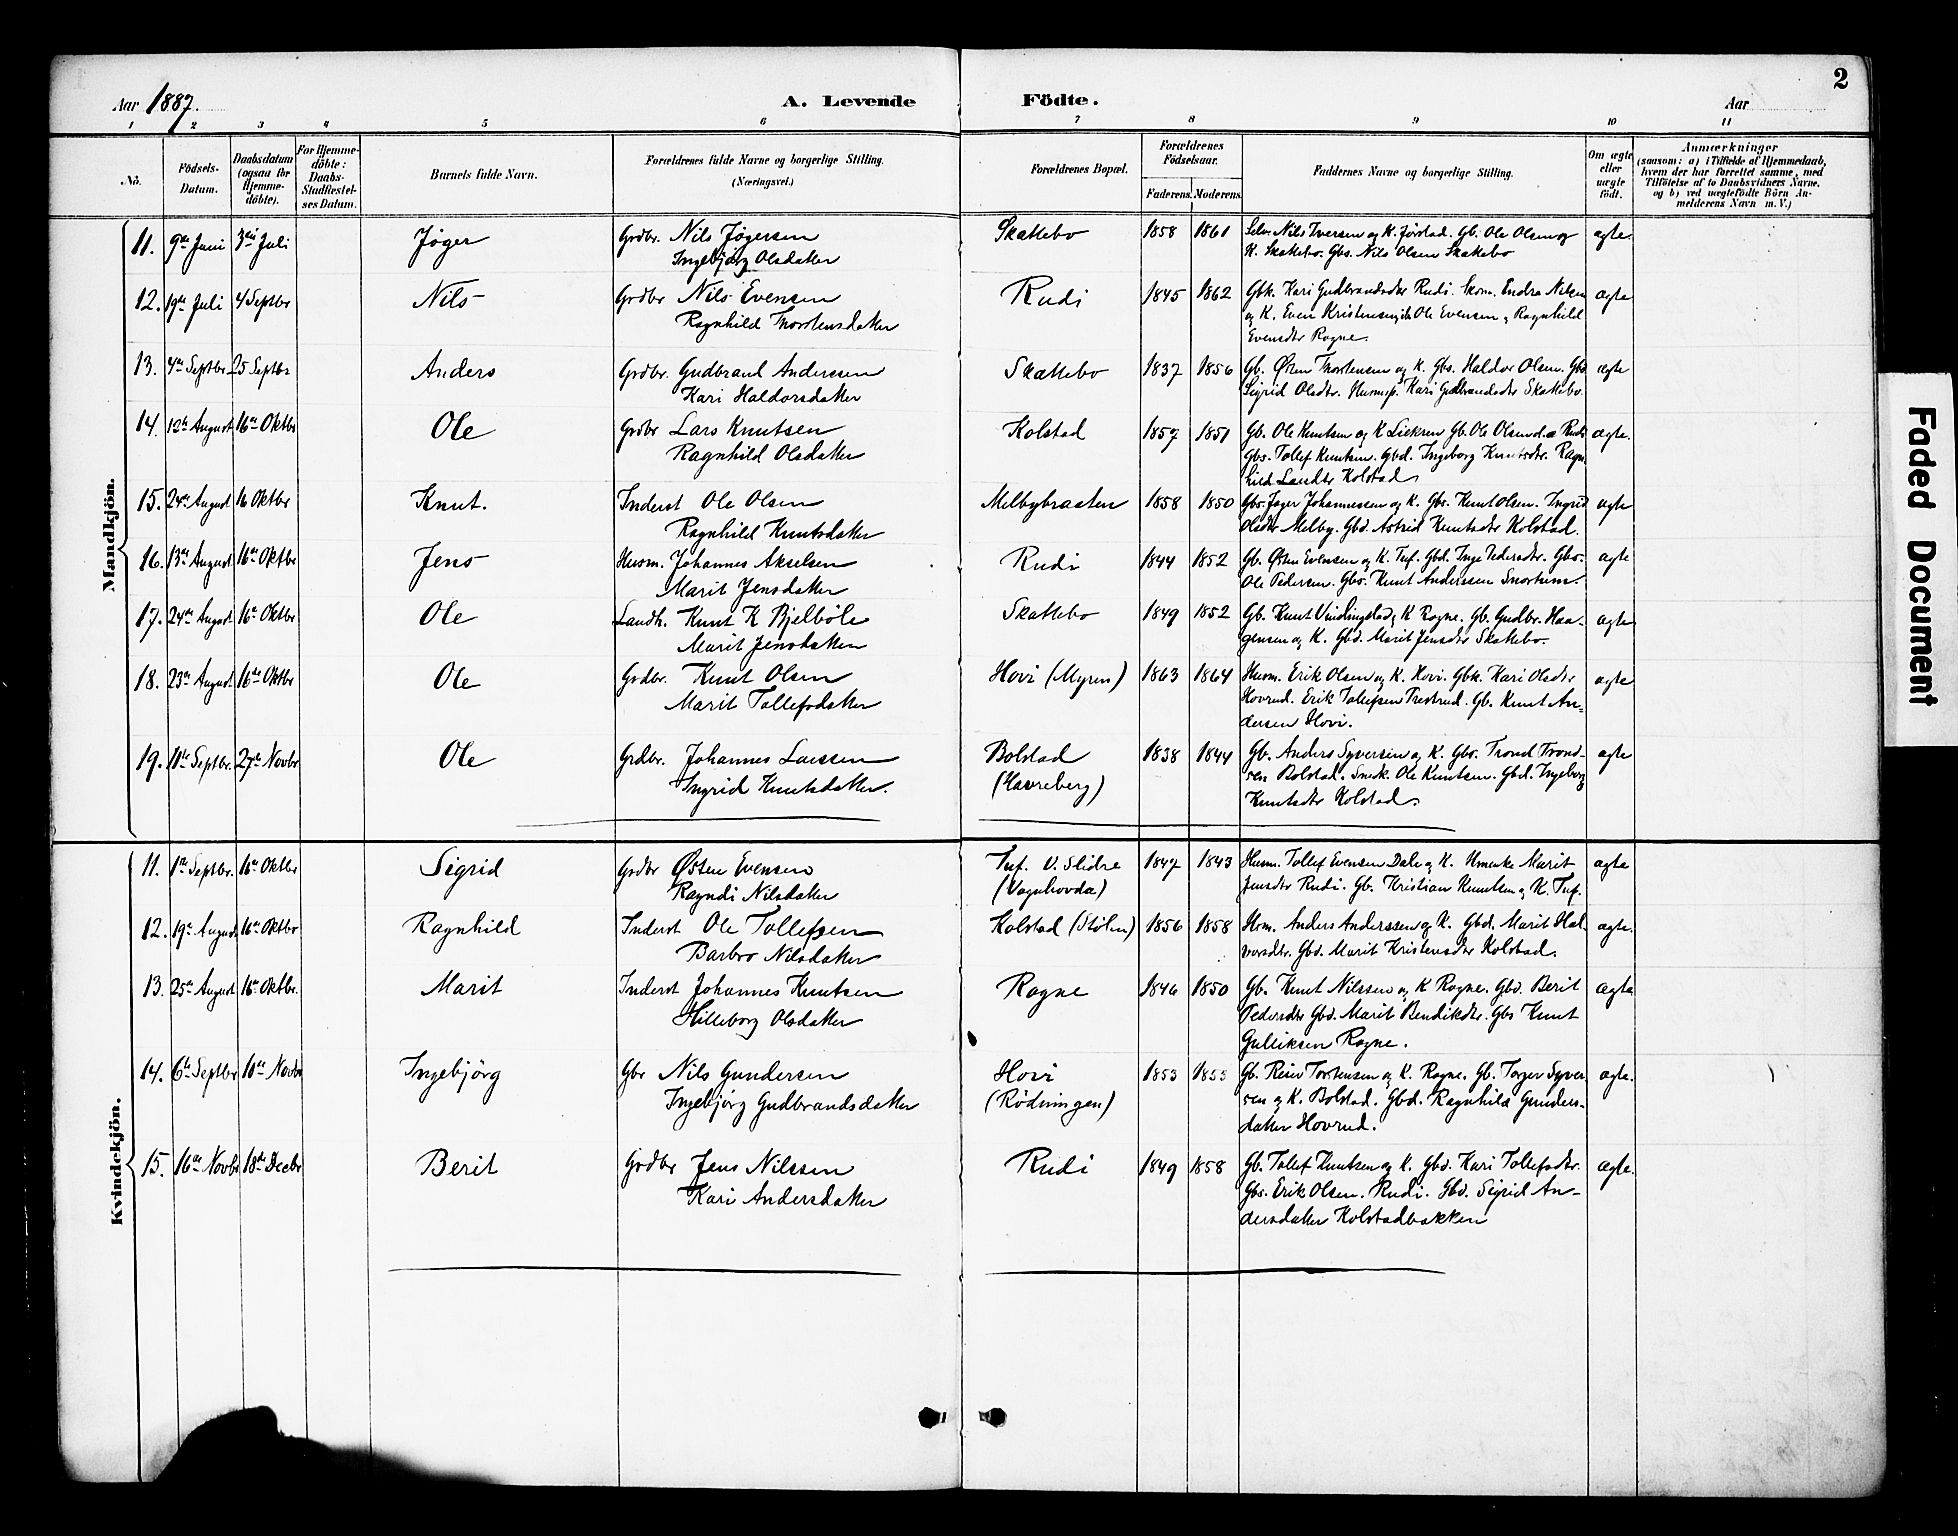 2
Aar 1887.
A. Levende Födte.
Aar
1 2 3 4 5 6 7 8 9 10 11
No.
Födsels-Datum.
Daabsdatum (ogsaa for Hjemme-döbte).
For Hjemme-döbte: Daabs-Stadfæstel-ses Datum.
Barnets fulde Navn.
Forældrenes fulde Navne og borgerlige Stilling.
(Næringsvei.)
Forældrenes Bopæl.
Forældrenes Födselsaar.
Faderens. Moderens.
Faddernes Navne og borgerlige Stilling.
Om ægte eller uægte födt.
Anmærkninger
(saasom: a) i Tilfælde af Hjemmedaab,
hvem der har forrettet samme, med
Tilföielse af to Daabsvidners Navne,
og b) ved uægtefödte Börn An-
melderens Navn m. V.)
Mandkjön.
11. 9de Juni 3die Juli Jøger Grdbr. Nils Jøgersen Skattebo 1858 1861 Selv. Nils Iversen og K. Jørstad. Gb. Ole Olsen og ægte.
Ingebjørg Olsdatter K. Skattebo. Gbs. Nils Olsen Skattebo
12. 19de Juli 4 Septbr Nils Grdbr Nils Evensen Rudi 1845 1862 Gbk. Kari Gudbrandsdtr Rudi. Skom. Endre Nilsen ægte
Ragnhild Thorstensdatter og K. Even Kristensen Ole Evensen, Ragnhild
Evensdtr Rogne.
13. 4de Septbr 25 Septbr Anders Grdbr. Gudbrand Anderssen Skattebo 1837 1856 Gb. Østen Thorstensen og K. Gbs. Haldor Olsen. Gbd ægte
Kari Haldorsdatter Sigrid Olsdtr. Kari Gudbrandsdtr Skattebo.
14. 12te August 16de Oktbr Ole Grdbr Lars Knutsen Kolstad 1857 1851 Gb. Ole Knutsen og K Gb. Ole Olsen Rudi ægte.
Ragnhild Olsdatter Gbs. Tollef Knutsen. Gbd. Ingeborg Knutsdtr. Ragn-
hild Larsdtr Kolstad.
15. 24de August 16 Oktbr Knut. Inderst Ole Olsen Melbybraaten 1858 1850 Gbs. Jøger Johannessen og K. Gbs. Knut Olsen. Ingrid ægte
Ragnhild Knutsdatter Olsdtr Melby. Gbd. Astrid Knutsdtr Kolstad.
16. 13de August 16de Oktbr Jens Husm. Johannes Akselsen Rudi 1844 1852 Gb. Østen Evensen og K. Tuf. Gbd. Inge Pedersdtr. Gbs. ægte
Marit Jensdatter Ole Pedersen. Gbs. Knut Anderssen Snortum.
17. 24de August 16de Oktbr Ole Landh. Knut K Bjelbøle Skattebo 1849 1852 Gb. Knut Vindingstad og K Rogne. Gb. Gudbr. Haa- ægte
Marit Jensdatter gensen og K. Gbd. Marit Jensdtr Skattebo.
18. 23de August 16de Oktbr Ole Grdbr. Knut Olsen Hovi (Myren) 1863 1864 Husm. Erik Olsen og K. Hovi. Gbk. Kari Olsdtr ægte
Marit Tollefsdatter Hovrud. Erik Tollefsen Trestrud. Gb. Knut An-
dersen Hovi.
19. 11te Septbr. 27de Novbr Ole Grdbr. Johannes Larssen Bolstad 1838 1844 Gb. Anders Syversen og K. Gbs. Trond Trond- ægte
Ingrid Knutsdatter. (Havreberg) sen Bolstad. Snedk. Ole Knutsen. Gbd. Ingeborg
Knutsdtr Kolstad.
Kvindekjön.
11. 1ste Septbr. 16de Oktbr Sigrid Grdbr Østen Evensen Tuf. V. Slidre 1847 1843 Husm. Tollef Evensen Dale og K. Marit ægte
Ragndi Nilsdatter (Vagnhovda) Jensdtr Rudi. Gb. Kristian Knutsen og K. Tuf.
12. 19de August 16de Oktbr Ragnhild Inderst Ole Tollefsen Kolstad (Stølen) 1856 1858 Hsm. Anders Anderssen og K. Gbd. Marit Hal- ægte.
Barbro Nilsdatter vorsdtr. Gbd. Marit Kristensdtr Kolstad.
13. 25de August 16de Oktbr. Marit Inderst Johannes Knutsen Rogne 1846 1850 Gb. Knut Nilssen og K Rogne. Gbd. Berit ægte
Hilleborg Olsdatter Pedersdtr Gbd. Marit Bendiksdtr. Gbs Knut
Gulliksen Rogne.
14. 6te Septbr 10de Novbr Ingebjörg Gbr Nils Gundersen Hovi 1853 1855 Gb. Reier Torstensen og K. Rogne. Gb. Torger Syver- ægte.
Ingebjörg Gudbrandsdatter (Rödningen) sen og K. Bolstad. Gbd. Ragnhild Gunders-
datter Hovrud.
15. 16de Novbr 18de Decbr Berit Grdbr Jens Nilssen Rudi 1849 1858 Gb. Tollef Knutsen og K. Gbd. Kari Tollefsdtr. ægte.
Kari Andersdatter Gbs. Erik Olsen. Rudi. Gbd. Sigrid An-
dersdatter Kolstadbakken
Faded Document